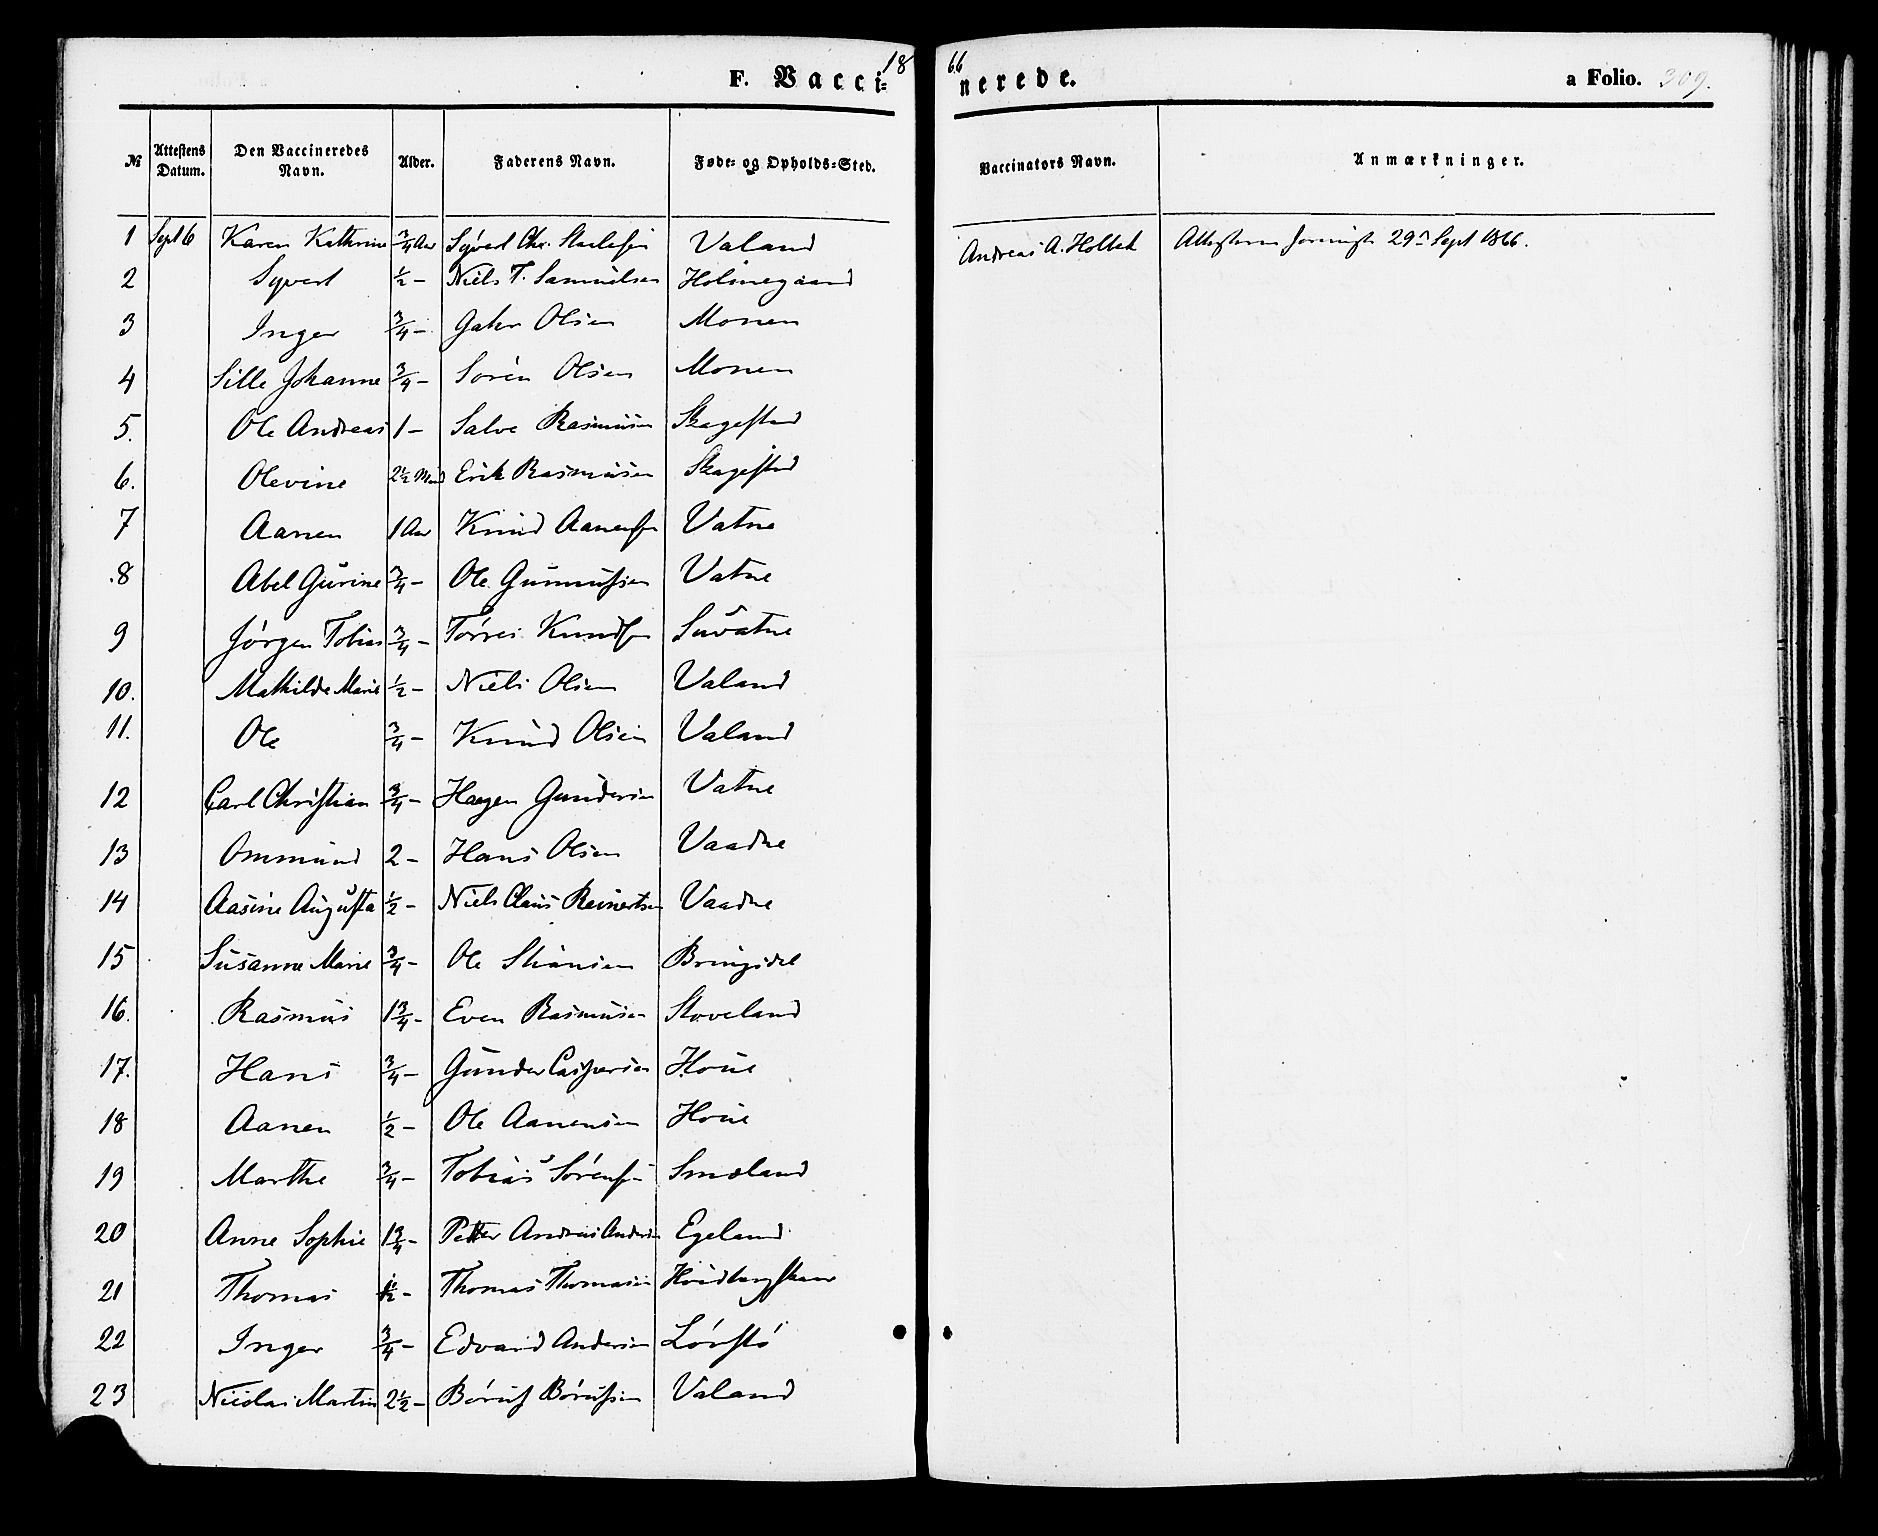 18 66
F. Vacci= nerede. a Folio. 309.
№ Attestens Datum. Den Vaccineredes Navn. Alder. Faderens Navn. Føde- og Opholds-Sted. Vaccinators Navn. Anmærkninger.
1 Sept 6 Karen Kathrine 3/4 Aar Syvert Chr. Valand Andreas A. Holbek 29de Sept 1866.
2 Syvert 1/2 – Niels T. Samuelsen Holmegaard
3 Inger 3/4 – Olsen Monen
4 Sille Johanne 3/4 – Sören Olsen Monen
5. Ole Andreas 1 – Salve Rasmusen Skagestad
6. Olevine 2 1/2 Mnd Erik Rasmusen Skagestad
7 Aanen 1 Aar Knud Aanensen Vatne
8 Abel Gurine 3/4 – Ole Gunnufsen Vatne
9 Jörgen Tobias 3/4 – Törres Knudsen Suvatne
10. Mathilde Marie 1/2 – Niels Olsen Valand
11. Ole 3/4 – Knud Olsen Valand
12 Carl Christian 3/4 – Haagen Gundersen Vatne
13 Ommund 2 – Hans Olsen Vaadne
14 Aasine Augusta 1/2 – Niels Claus Reinertsen Vaadne
15 Susanne Marie 3/4 – Ole Bringsdal
16. Rasmus 1 3/4 – Even Rasmusen Stoveland
17. Hans 3/4 – Gunder Caspersen Houe
18 Aanen 1/2 – Ole Aanensen Houe
19 Marthe 3/4 – Tobias Sörensen Smeland
20 Anne Sophie 1 3/4 – Petter Andreas Andersen Egeland
21 Thomas 1/2 – Thomas Thomasen
22 Inger 3/4 – Edvard Andersen
23 Nicolai Martin 2 1/2 – Böruf Börufsen Valand